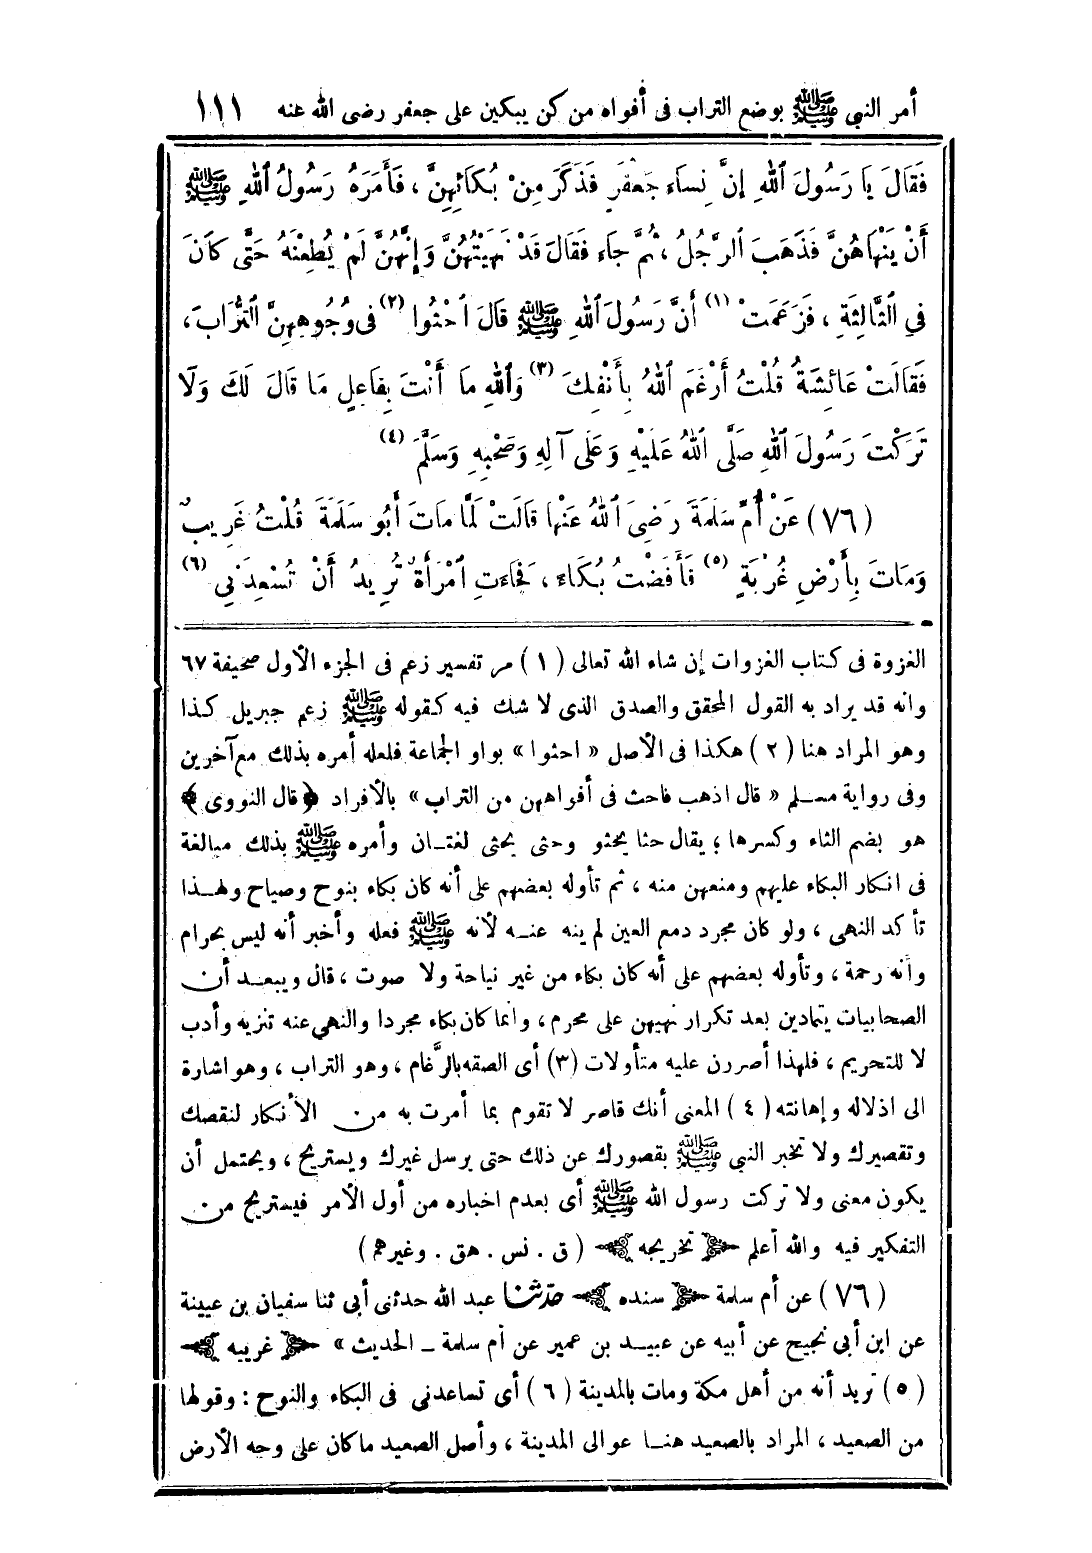 أمر النبي ﷺ بوضع التراب فى أفواه من كن يبكين على جعفر رضى الله عنه ١١١
فَقَالَ يَا رَسُولَ اللهِ إِنَّ نِسَاءَ جَعْفَرٍ فَذَكَرَ مِنْ بُكَائِهِنَّ ، فَأَمَرَهُ رَسُولُ اللهِ ﷺ
أَنْ يَنْهَاهُنَّ فَذَهَبَ الرَّجُلُ ، ثُمَّ جَاءَ فَقَالَ قَدْ نَهَيْتُهُنَّ وَإِنَّهُنَّ لَمْ يُطِعْنَهُ حَتَّى كَانَ
فِي الثَّالِثَةِ ، فَزَعَمَتْ (١) أَنَّ رَسُولَ اللهِ ﷺ قَالَ احْثُوا (٢) فى وُجُوهِهِنَّ التُّرَابَ ،
فَقَالَتْ عَائِشَةُ قُلْتُ أَرْغَمَ اللهُ بِأَنْفِكَ (٣) وَاللهِ مَا أَنْتَ بِفَاعِلٍ مَا قَالَ لَكَ وَلَا
تَرَكْتَ رَسُولَ اللهِ صَلَّى اللهُ عَلَيْهِ وَعَلَى آلِهِ وَصَحْبِهِ وَسَلَّمَ (٤)
(٧٦) عَنْ أُمِّ سَلَمَةَ رَضِيَ اللهُ عَنْهَا قَالَتْ لَمَّا مَاتَ أَبُو سَلَمَةَ قُلْتُ غَرِيبٌ
وَمَاتَ بِأَرْضِ غُرْبَةٍ (٥) فَأَفَضْتُ بُكَاءً ، فَجَاءَتِ امْرَأَةٌ تُرِيدُ أَنْ تُسْعِدَنِي (٦)
الغزوة فى كتاب الغزوات إن شاء الله تعالى (١) مر تفسير زعم فى الجزء الأول صحيفة ٦٧
وانه قد يراد به القول المحقق والصدق الذى لا شك فيه كقوله ﷺ زعم جبريل كذا
وهو المراد هنا (٢) هكذا فى الأصل « احثوا » بواو الجماعة فلعله أمره بذلك مع آخرين
وفى رواية مسلم « قال اذهب فاحث فى أفواههن من التراب » بالأفراد ﴿قال النووى﴾
هو بضم الثاء وكسرها ؛ يقال حثا يحثو وحثى يحثى لغتان وأمره ﷺ بذلك مبالغة
فى انكار البكاء عليهم ومنعهن منه ، ثم تأوله بعضهم على أنه كان بكاء بنوح وصياح ولهذا
تأكد النهى ، ولو كان مجرد دمع العين لم ينه عنه لأنه ﷺ فعله وأخبر أنه ليس بحرام
وأنه رحمة ، وتأوله بعضهم على أنه كان بكاء من غير نياحة ولا صوت ، قال ويبعد أن
الصحابيات يتمادين بعد تكرار نهيهن على محرم ، وانما كان بكاء مجردا والنهى عنه تنزيه وأدب
لا للتحريم ، فلهذا أصررن عليه متأولات (٣) أى الصقه بالرَّغام ، وهو التراب ، وهو اشارة
الى اذلاله وإهانته (٤) المعنى أنك قاصر لا تقوم بما أمرت به من الأنكار لنقصك
وتقصيرك ولا تخبر النبي ﷺ بقصورك عن ذلك حتى يرسل غيرك ويستريح ، ويحتمل أن
يكون معنى ولا تركت رسول الله ﷺ أى بعدم اخباره من أول الأمر فيستريح من
التفكير فيه والله أعلم ﴿تخريجه﴾ (ق . نس . هق . وغيرهم)
(٧٦) عن أم سلمة ﴿سنده﴾ حدّثنا عبد الله حدثنى أبى ثنا سفيان بن عيينة
عن ابن أبى نجيح عن أبيه عن عبيد بن عمير عن أم سلمة ـ الحديث » ﴿غريبه﴾
(٥) تريد أنه من أهل مكة ومات بالمدينة (٦) أى تساعدنى فى البكاء والنوح : وقولها
من الصعيد ، المراد بالصعيد هنا عوالى المدينة ، وأصل الصعيد ما كان على وجه الأرض